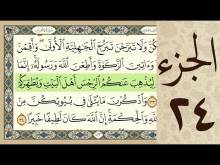 الجزء
٢٤
كُنَّ وَلَا تَبَرَّجْنَ تَبَرُّجَ ٱلْجَٰهِلِيَّةِ ٱلْأُولَىٰ وَأَقِمْنَ
وَءَاتِينَ ٱلزَّكَوٰةَ وَأَطِعْنَ ٱللَّهَ وَرَسُولَهُۥٓ إِنَّمَا
لِيُذْهِبَ عَنكُمُ ٱلرِّجْسَ أَهْلَ ٱلْبَيْتِ وَيُطَهِّرَكُ
وَٱذْكُرْنَ مَا يُتْلَىٰ فِى بُيُوتِكُنَّ مِنْ
وَٱلْحِكْمَةِ إِنَّ ٱللَّهَ كَانَ لَطِيفًا خَبِيرًا